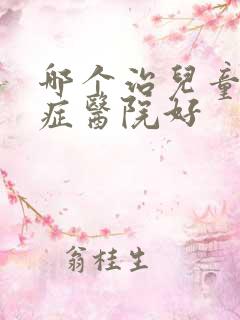 哪个治兒童
症醫院好
翁桂生